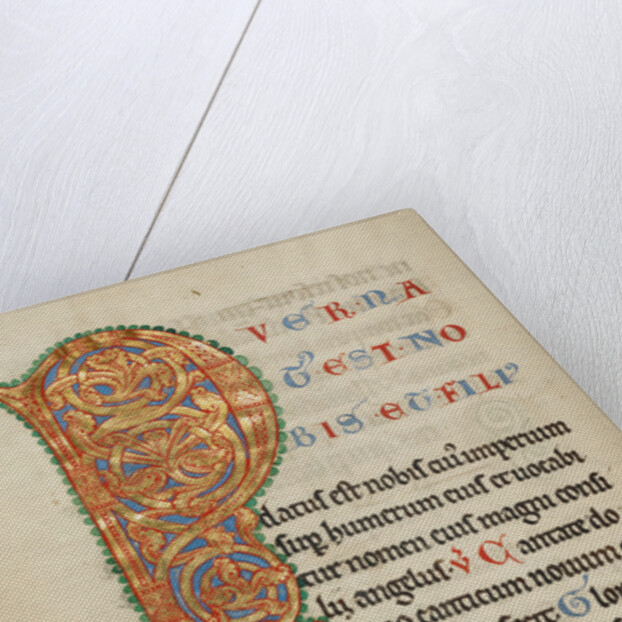 P
VER NA
T EST NO
BIS ET FILI
datus est nobis cui imperium
sup humerum eius et uocabi
tur nomen eius magni consi
lii angelus. V Cantate do
canticum nouum